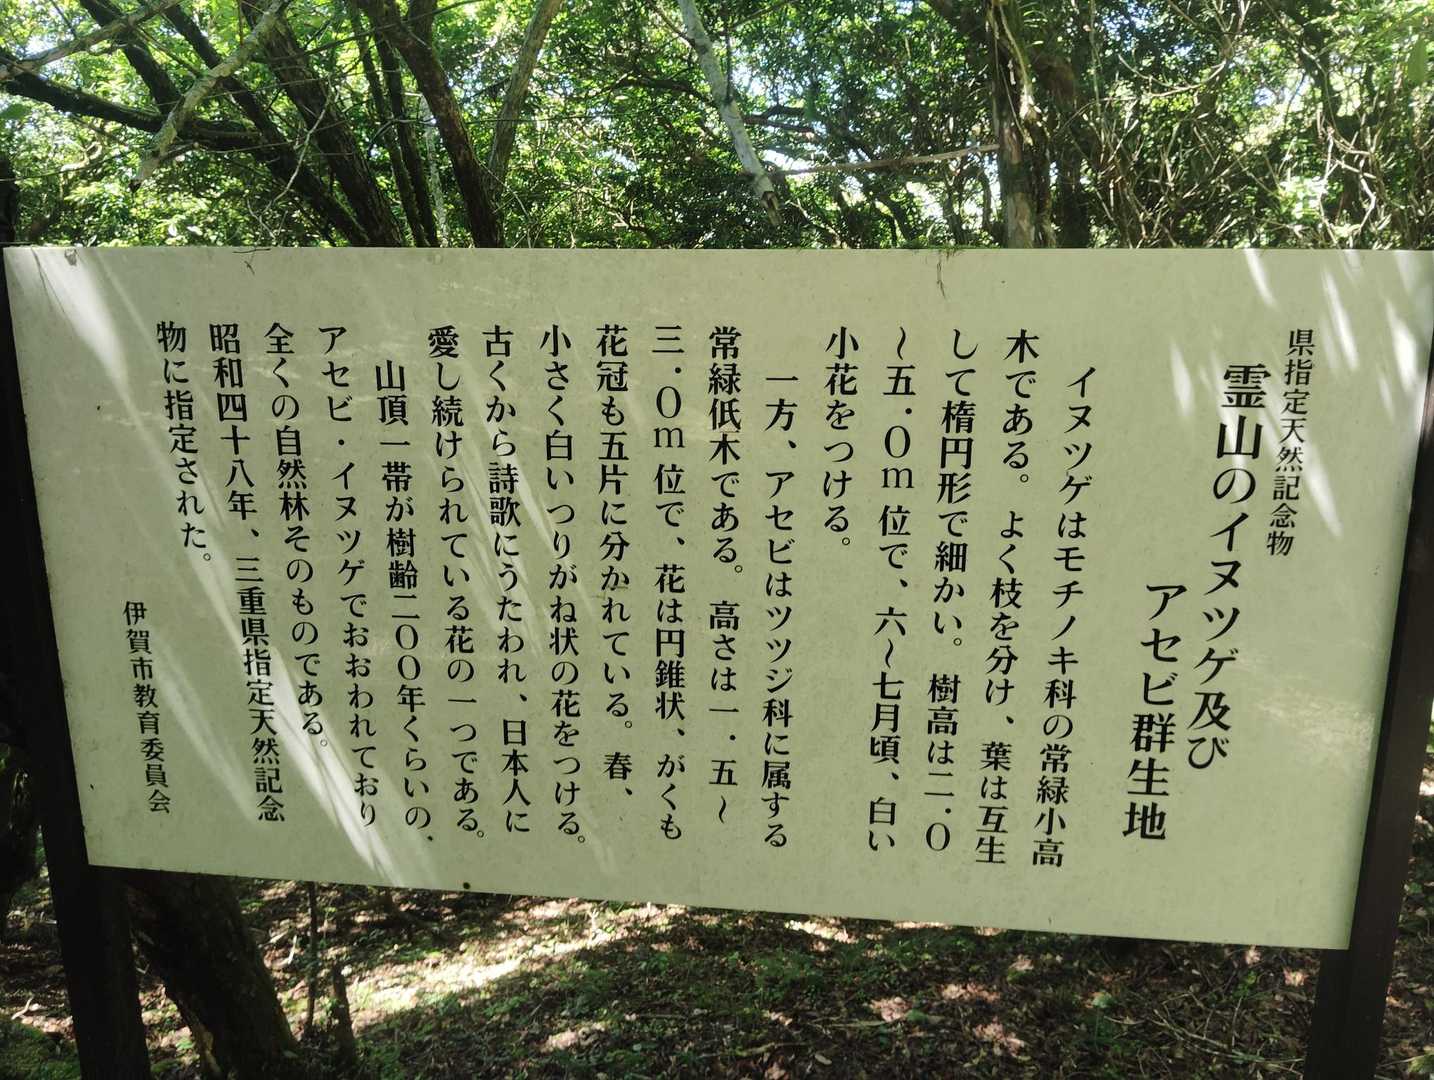 県指定天然記念物
霊山のイヌツゲ及び
アセビ群生地
イヌツゲはモチノキ科の常緑小高
木である。よく枝を分け、葉は互生
して楕円形で細かい。樹高は二・０
～五・０ｍ位で、六～七月頃、白い
小花をつける。
一方、アセビはツツジ科に属する
常緑低木である。高さは一・五～
三・０ｍ位で、花は円錐状、がくも
花冠も五片に分かれている。春、
小さく白いつりがね状の花をつける。
古くから詩歌にうたわれ、日本人に
愛し続けられている花の一つである。
山頂一帯が樹齢二００年くらいの、
アセビ・イヌツゲでおおわれており
全くの自然林そのものである。
昭和四十八年、三重県指定天然記念
物に指定された。
伊賀市教育委員会